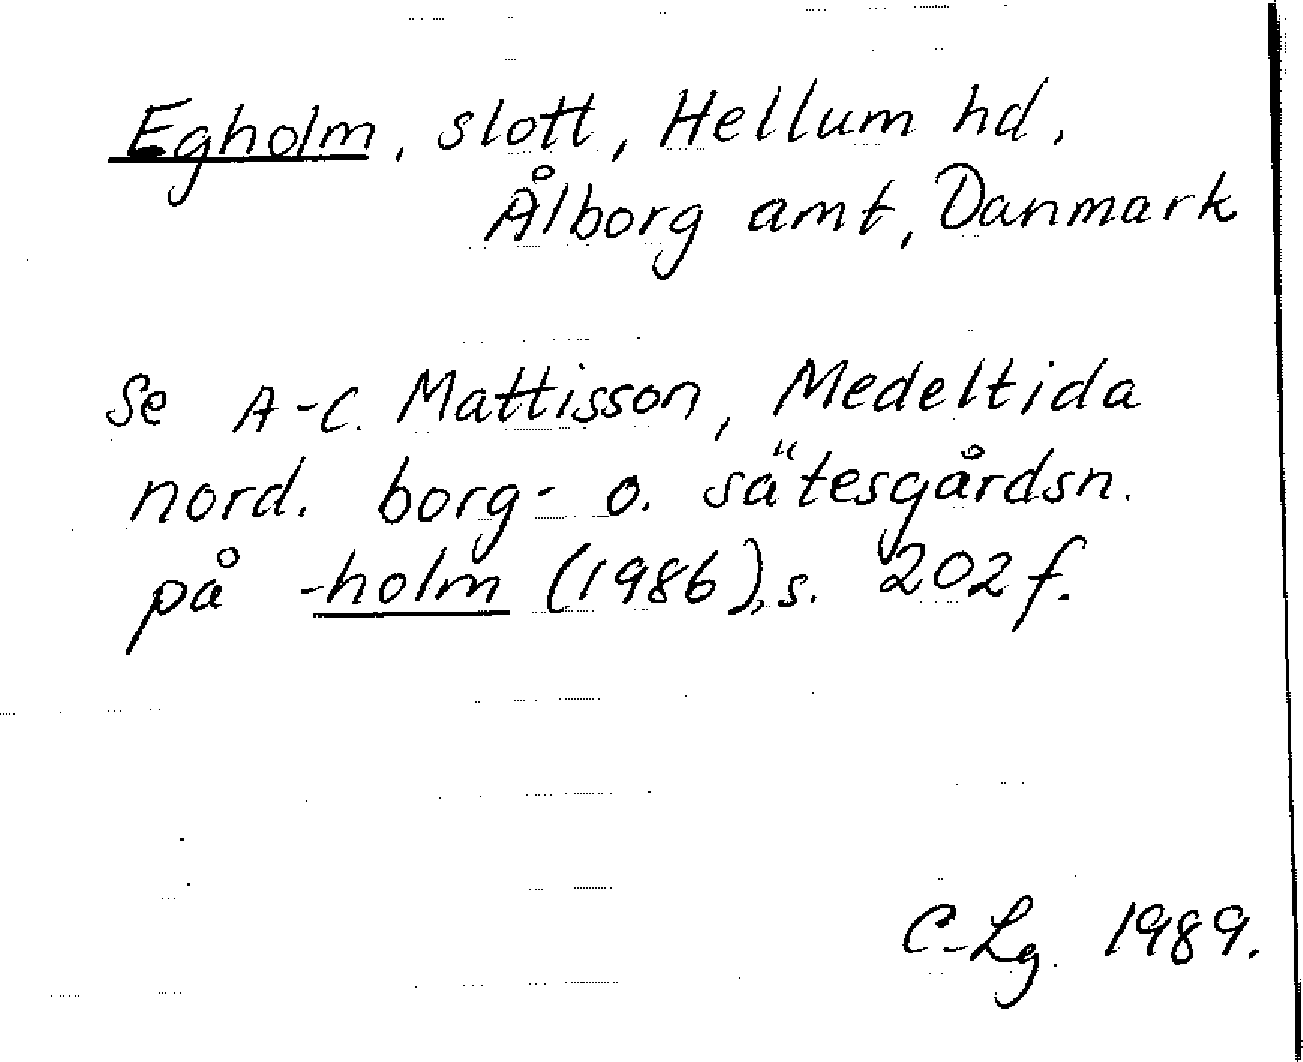 Egholm, slott, Hellum hd,
Ålborg amt, Danmark
Se A-C. Mattisson, Medeltida
nord. borg- o. sätesgårdsn.
på -holm (1986), s. 202 f.
C-Lg. 1989.